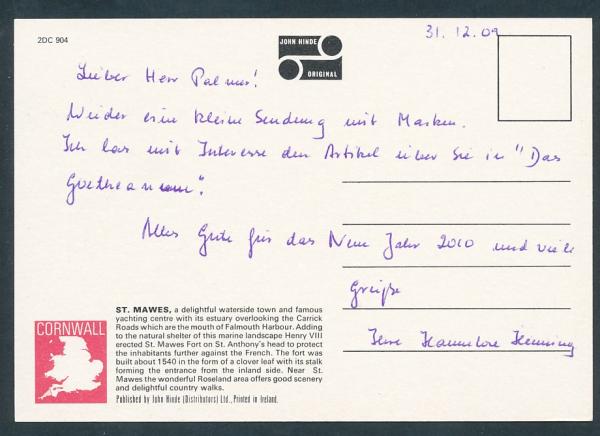 2DC 904
31.12.09
JOHN HINDE
ORIGINAL
Lieber Herr Palmer!
Wieder eine kleine Sendung mit Marken.
Ich las mit Interesse den Artikel über Sie in "Das
Goetheanum".
Alles Gute für das Neue Jahr 2010 und viele
Grüße
Ihre Hannelore Henning
CORNWALL
ST. MAWES, a delightful waterside town and famous
yachting centre with its estuary overlooking the Carrick
Roads which are the mouth of Falmouth Harbour. Adding
to the natural shelter of this marine landscape Henry VIII
erected St. Mawes Fort on St. Anthony's head to protect
the inhabitants further against the French. The fort was
built about 1540 in the form of a clover leaf with its stalk
forming the entrance from the inland side. Near St.
Mawes the wonderful Roseland area offers good scenery
and delightful country walks.
Published by John Hinde (Distributors) Ltd., Printed in Ireland.